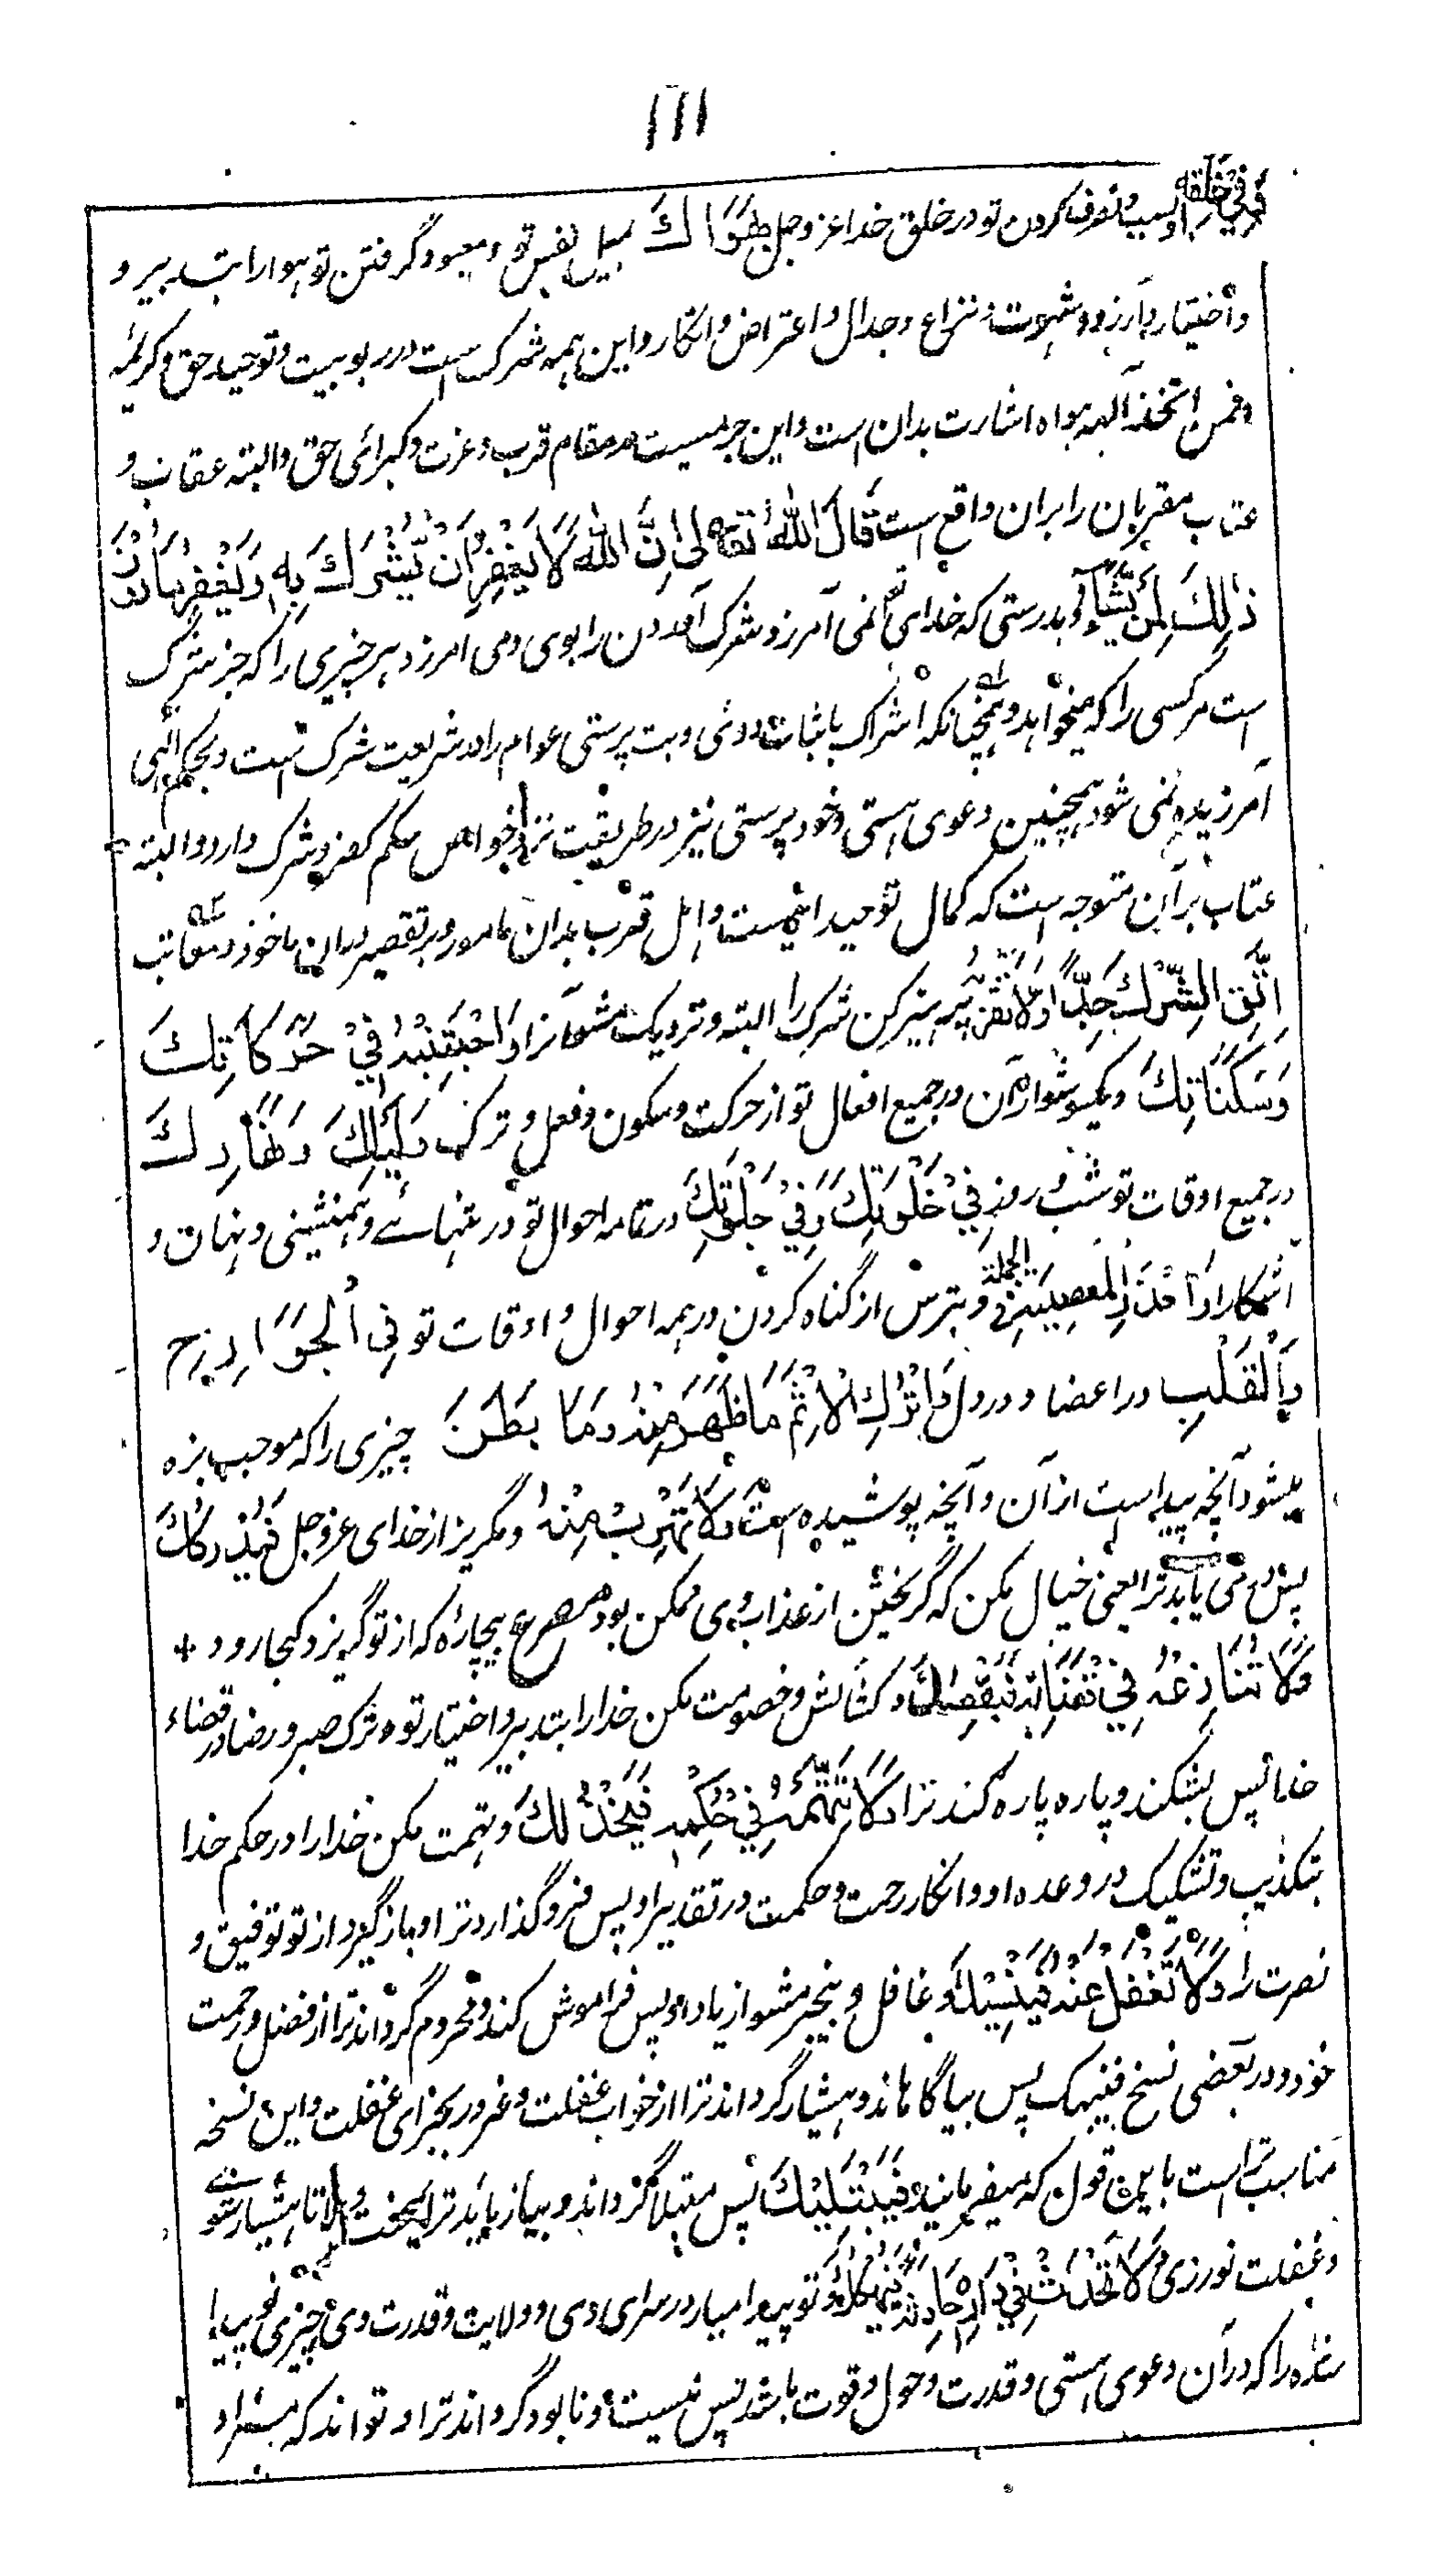 ١١١
وفی خلقه و بسبب تصرف کردن تو در خلق خدا عز وجل بِهَوَاكَ بمیل نفس تو و معبود گرفتن تو هوا را بتدبیر و
و اختیار و آرزو و شهوت و نزاع و جدال و اعتراض و انکار و این همه شرک است در ربوبیت و توحید حق و کریمهٔ
فمن اتخذ الهه هواه اشارت بدان است و این جرمیست در مقام قرب و عزت و کبرائی حق و البته عقاب و
عتاب مقربان را بران واقع است قَالَ اللهُ تعالی اِنَّ اللهَ لَا یَغْفِرُ اَنْ یُّشْرَكَ بِهِ وَیَغْفِرُ مَا دُوْنَ
ذٰلِكَ لِمَنْ یَّشَآءُ و بدرستی که خدای تعالی نمی آمرزد شرک آوردن را بوی و می امرزد هر چیزی را که جز شرک
است مر کسی را که میخواهد و همچنانکه اشراک باثبات دوئی و بت پرستی عوام را در شریعت شرک است و بحکم الٰهی
آمرزیده نمی شود همچنین دعوی هستی و خود پرستی نیز در طریقت نزد خواص حکم کفر و شرک دارد و البته
عتاب بر آن متوجه است که کمال توحید اینست و اهل قرب بدان مامور و بر تقصیر دران ماخوذ و معاتب
اِتَّقِ الشِّرْكَ جِدًّا وَّلَا تَقْرَبْهُ پرهیز کن شرک را البته و نزدیک مشو آنرا وَاجْتَنِبْهُ فِیْ حَرَكَاتِكَ
وَسَكَنَاتِكَ و یکسو شو از آن در جمیع افعال تو از حرکت و سکون و فعل و ترک لَیْلِكَ وَنَهَارِكَ
در جمیع اوقات تو شب و روز فِیْ خَلْوَتِكَ وَفِیْ جَلْوَتِكَ در تمامه احوال تو در تنهائے و همنشینی و نهان و
آشکارا وَاحْذَرِ الْمَعْصِیَةَ فِی الجملة و بترس از گناه کردن در همه احوال و اوقات تو فِی الْجَوَارِحِ
وَالْقَلْبِ در اعضا و در دل وَاتْرُكِ الْاِثْمَ مَا ظَهَرَ مِنْهُ وَمَا بَطَنَ چیزی را که موجب بزه
میشود آنچه پیدا است از آن و آنچه پوشیده است وَلَا تَهْرُبْ مِنْهُ و مگریز از خدای عز وجل فَیُدْرِكُكَ
پس می یابد ترا یعنی خیال مکن که گریختن از عذاب وی ممکن بود مصرع بیچاره که از تو گریزد کجا رود +
وَلَا تُنَازِعْهُ فِیْ قَضَائِهِ فَیَقْصِمَكَ و کشاکش و خصومت مکن خدا را بتدبیر و اختیار تو و ترک صبر و رضا در قضاء
خدا پس بشکند و پاره پاره کند ترا وَلَا تَتَّهِمْهُ فِیْ حُكْمِهِ فَیَخْذُلَكَ و تهمت مکن خدا را در حکم خدا
بتکذیب و تشکیک در وعده او و انکار رحمت و حکمت در تقدیر او پس فرو گذارد ترا و باز گیرد از تو توفیق و
نصرت را وَلَا تَغْفُلْ عَنْهُ فَیَنْسِیَكَ و غافل و بیخبر مشو از یاد او پس فراموش کند و محروم گرداند ترا از فضل و رحمت
خود و در بعضی نسخ فینبهک پس بیاگاهاند و هشیار گرداند ترا از خواب غفلت و غرور بجزای غفلت و این نسخه
مناسب تر است باین قول که میفرماید فَیَبْتَلِیَكَ پس مبتلا گرداند و بیازماید ترا بمحنت و بلا تا هشیار شوے
و غفلت نورزی وَلَا تُحْدِثْ فِیْ دَارِهِ حَادِثَةً فَیُهْلِكَكَ و تو پیدا میار در سرای وی و ولایت و قدرت وی چیزی نو پیدا
شده را که در آن دعوی هستی و قدرت و حول و قوت باشد پس نیست و نابود گرداند ترا و تواند که مراد